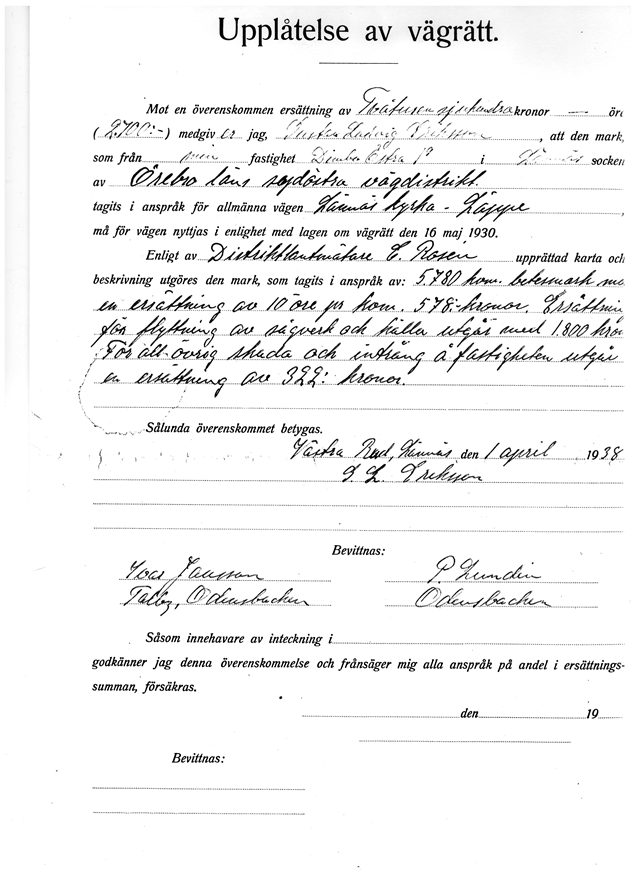 Upplåtelse av vägrätt.
Mot en överenskommen ersättning av Tvåtusensjuhundra kronor — öre
(2.700:-) medgiver jag, Gustaf Ludvig Eriksson, att den mark,
som från min fastighet Östra 1⁹ i Lännäs socken
av Örebro läns sydöstra vägdistrikt
tagits i anspråk för allmänna vägen Lännäs kyrka - Läppe,
må för vägen nyttjas i enlighet med lagen om vägrätt den 16 maj 1930.
Enligt av Distriktlantmätare E. Rosén upprättad karta och
beskrivning utgöres den mark, som tagits i anspråk av: 5.780 kvm. betesmark me
en ersättning av 10 öre pr kvm. 578:- kronor. Ersättnin
för flyttning av sågverk och källa utgår med 1.800 kron
För all övrig skada och intrång å fastigheten utgår
en ersättning av 322: kronor.
Sålunda överenskommet betygas.
Västra Lännäs, den 1 april 1938
G. L. Eriksson
Bevittnas:
Ivar Jansson P. Lundin
Talby, Odensbacken Odensbacken
Såsom innehavare av inteckning i
godkänner jag denna överenskommelse och frånsäger mig alla anspråk på andel i ersättnings-
summan, försäkras.
den 19
Bevittnas: